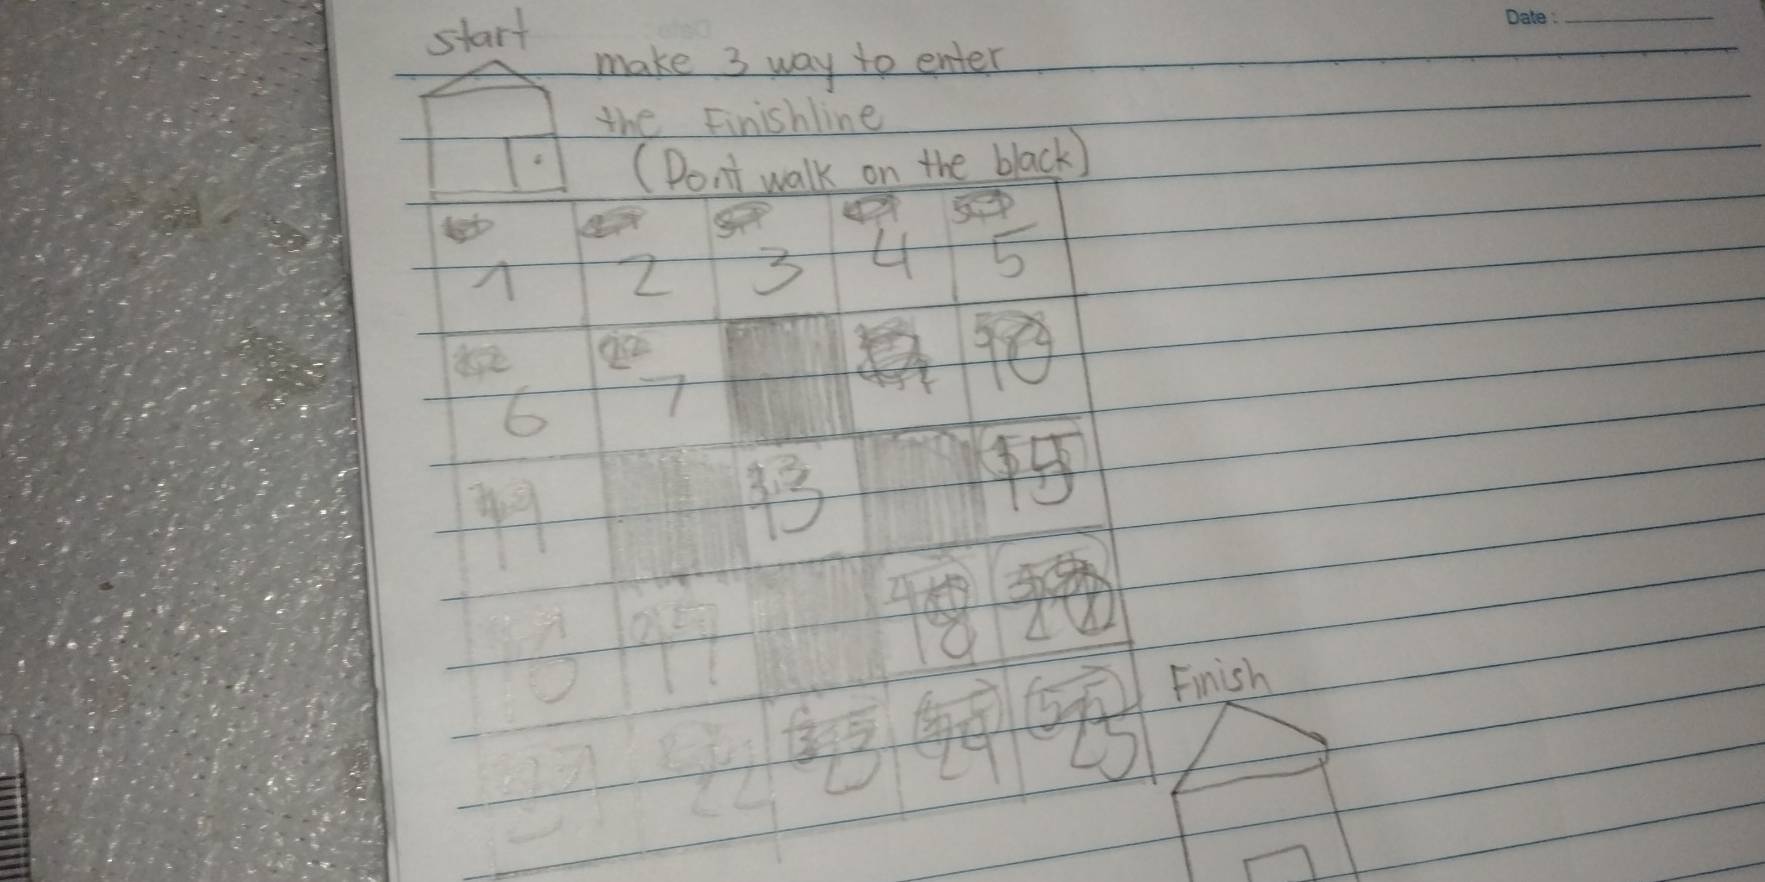 Date :
start
make 3 way to enter
the Finishline
(Don't walk on the black)
1 2 3 4 5
6 7 10
11 13 15
16 17 18 20
22 23 24 25
Finish